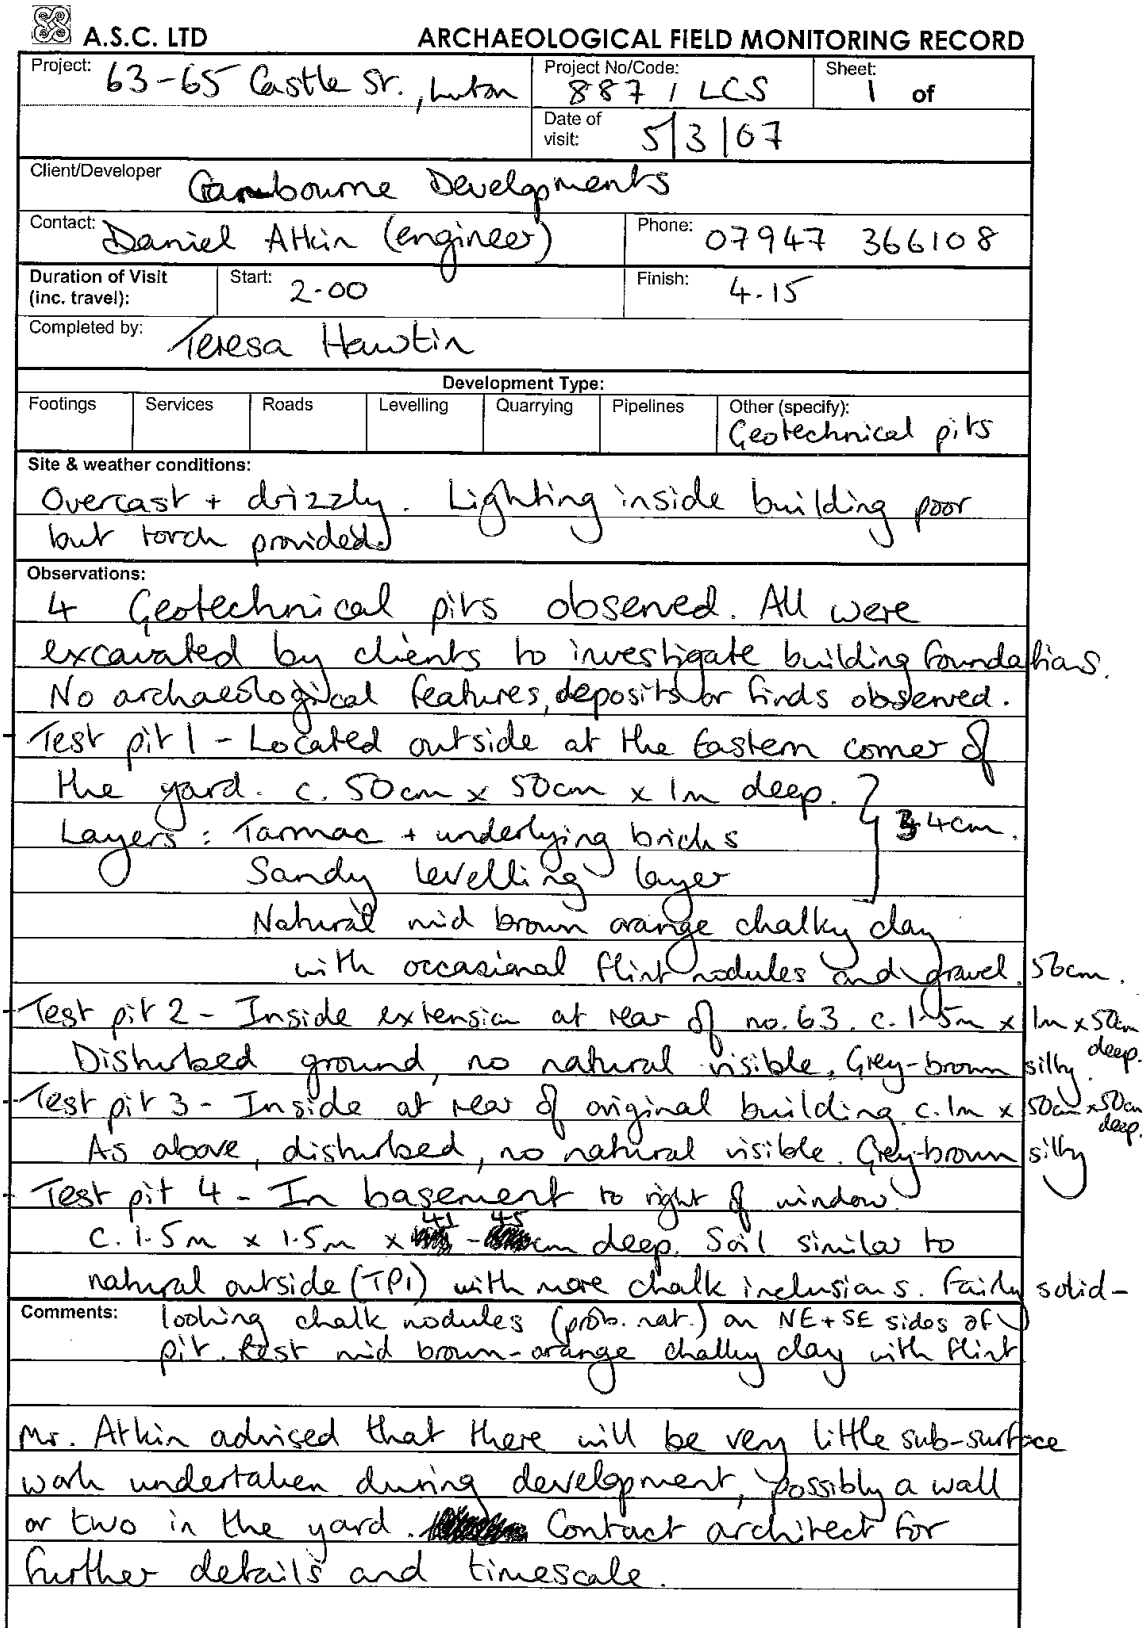 A.S.C. LTD ARCHAEOLOGICAL FIELD MONITORING RECORD
Project: 63-65 Castle St., Luton
Project No/Code: 887 / LCS
Sheet: 1 of
Date of visit: 5/3/07
Client/Developer Cambourne Developments
Contact: Daniel Atkin (engineer)
Phone: 07947 366108
Duration of Visit (inc. travel):
Start: 2-00
Finish: 4.15
Completed by: Teresa Hawtin
Development Type:
Footings Services Roads Levelling Quarrying Pipelines Other (specify):
Geotechnical pits
Site & weather conditions:
Overcast + drizzly. Lighting inside building poor
but torch provided.
Observations:
4 Geotechnical pits observed. All were
excavated by clients to investigate building foundations.
No archaeological features, deposits or finds observed.
- Test pit 1 - Located outside at the Eastern corner of
the yard. c. 50cm x 50cm x 1m deep.
Layers : Tarmac + underlying bricks 34cm.
Sandy levelling layer
Natural mid brown orange chalky clay
with occasional flint nodules and gravel 56cm.
- Test pit 2 - Inside extension at rear of no. 63. c. 1.5m x 1m x 50cm deep.
Disturbed ground, no natural visible, Grey-brown silty.
- Test pit 3 - Inside at rear of original building c. 1m x 50cm x 50cm deep.
As above, disturbed, no natural visible. Grey-brown silty
- Test pit 4 - In basement to right of window.
c. 1.5m x 1.5m x 41 - 45cm deep. Soil similar to
natural outside (TP1) with more chalk inclusions. Fairly solid-
Comments: looking chalk nodules (prob. nat.) on NE + SE sides of
pit. Rest mid brown-orange chalky clay with flint
Mr. Atkin advised that there will be very little sub-surface
work undertaken during development, possibly a wall
or two in the yard. Contact architect for
further details and timescale.